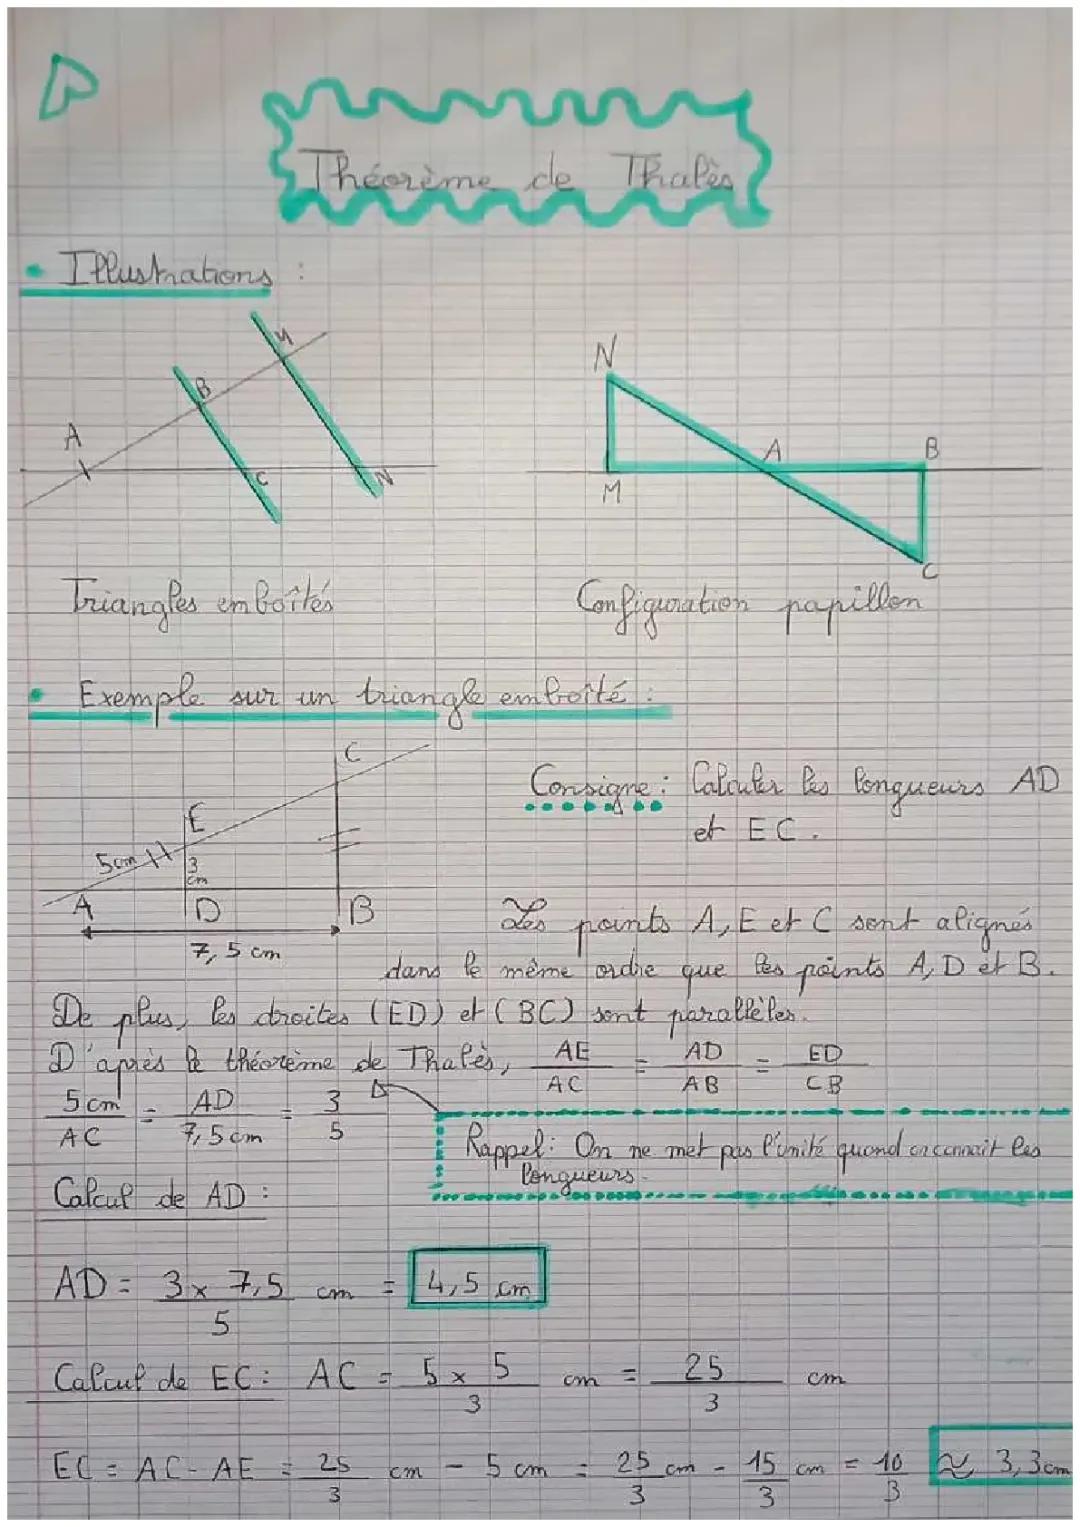 Théorème de Thalès
• Illustrations :
A B M C N
N A B M C
Triangles emboîtés
Configuration papillon
• Exemple sur un triangle emboîté :
C
E
5cm
3 cm
A D B
7,5 cm
Consigne : Calculer les longueurs AD
et EC.
Les points A, E et C sont alignés
dans le même ordre que les points A, D et B.
De plus, les droites (ED) et (BC) sont parallèles.
D'après le théorème de Thalès, AE/AC = AD/AB = ED/CB
5cm/AC = AD/7,5cm = 3/5
Rappel : On ne met pas l'unité quand on connait les
longueurs.
Calcul de AD :
AD = 3 x 7,5/5 cm = 4,5 cm
Calcul de EC : AC = 5 x 5/3 cm = 25/3 cm
EC = AC - AE = 25/3 cm - 5 cm = 25/3 cm - 15/3 cm = 10/3 ≈ 3,3cm